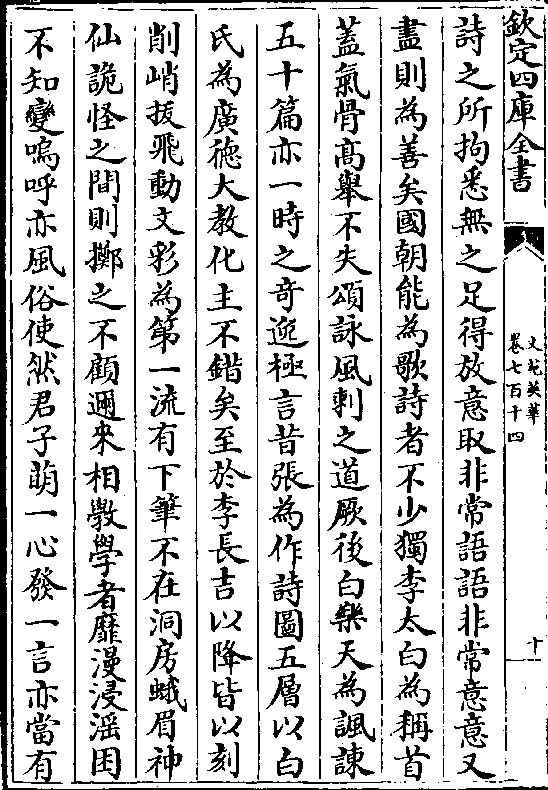 欽定四庫全書
文苑英華
卷七百十四
十
詩之所拘悉無之足得放意取非常語語非常意意又
盡則為善矣國朝能為歌詩者不少獨李太白為稱首
蓋氣骨髙舉不失頌詠風刺之道厥後白樂天為諷諌
五十篇亦一時之竒逈極言昔張為作詩圖五層以白
氏為廣徳大教化主不錯矣至於李長吉以降皆以刻
削峭拔飛動文彩為第一流有下筆不在洞房蛾眉神
仙詭怪之間則擲之不顧邇来相斆學者靡漫浸淫困
不知變嗚呼亦風俗使然君子萌一心發一言亦當有